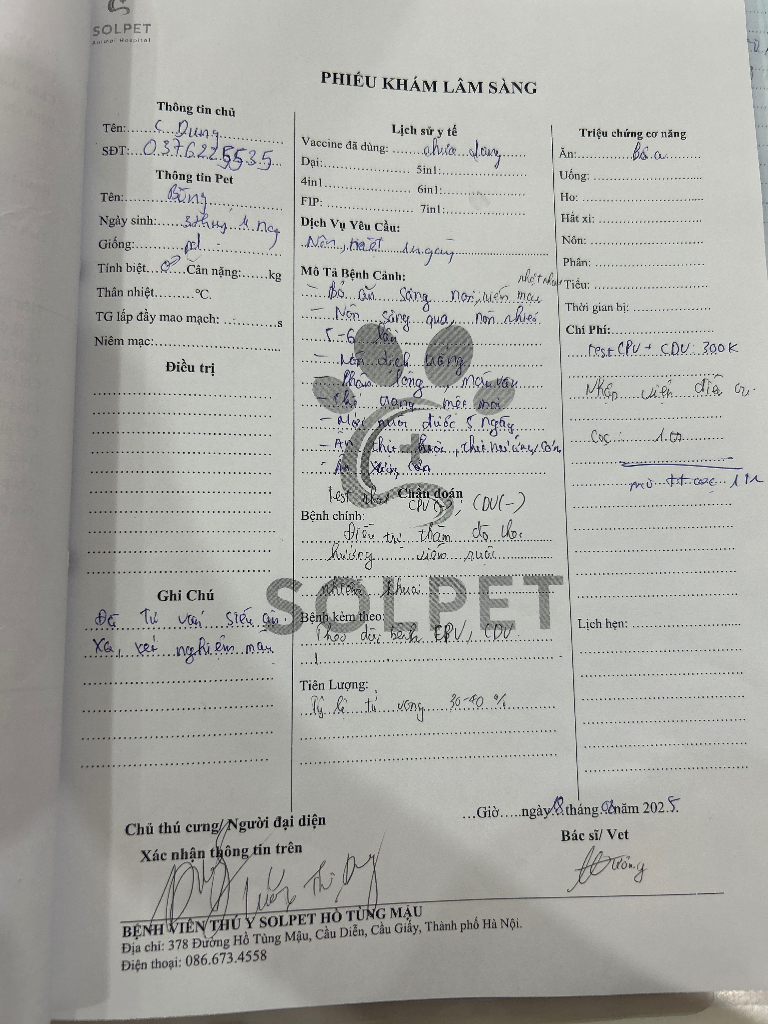 SOLPET
Animal Hospital
PHIẾU KHÁM LÂM SÀNG
Thông tin chủ
Tên: C Dung
SĐT: 0376225535
Thông tin Pet
Tên: Bông
Ngày sinh: 3 tháng
Giống:
Tính biệt ♂ Cân nặng:......kg
Thân nhiệt.........°C.
TG lấp đầy mao mạch: ..........s
Niêm mạc:
Điều trị
Ghi Chú
Đã tư vấn siêu âm
XQ, xét nghiệm máu
Lịch sử y tế
Vaccine đã dùng: chưa dùng
Dại: 5in1:
4in1 6in1:
FIP: 7in1:
Dịch Vụ Yêu Cầu:
Nôn, 1 ngày
Mô Tả Bệnh Cảnh:
- Bỏ ăn sáng nay,
- Nôn sáng qua, nôn nhiều
5-6 lần
- Nôn dịch trắng
Phân lỏng, màu vàng
- Thể trạng mệt mỏi
- Mới nuôi được 5 ngày
- Ăn thịt
- Ăn
Test
Chẩn đoán
CPV(-), CDV(-)
Bệnh chính:
Điều trị thăm dò theo
hướng viêm ruột
nhiễm khuẩn
Bệnh kèm theo:
Theo dõi bệnh CPV, CDV
Tiên Lượng:
Tỷ lệ tử vong 30-40 %
Triệu chứng cơ năng
Ăn: Bỏ ă
Uống:
Ho:
Hắt xì:
Nôn:
Phân:
Tiểu:
Thời gian bị:
Chi Phí:
test CPV + CDV: 300K
Nhập viện
Cọc:
cọc 1
Lịch hẹn:
SOLPET
Chủ thú cưng/ Người đại diện
Xác nhận thông tin trên
...Giờ.....ngày tháng năm 2025.
Bác sĩ/ Vet
BỆNH VIÊN THÚ Y SOLPET HỒ TÙNG MẬU
Địa chỉ: 378 Đường Hồ Tùng Mậu, Cầu Diễn, Cầu Giấy, Thành phố Hà Nội.
Điện thoại: 086.673.4558